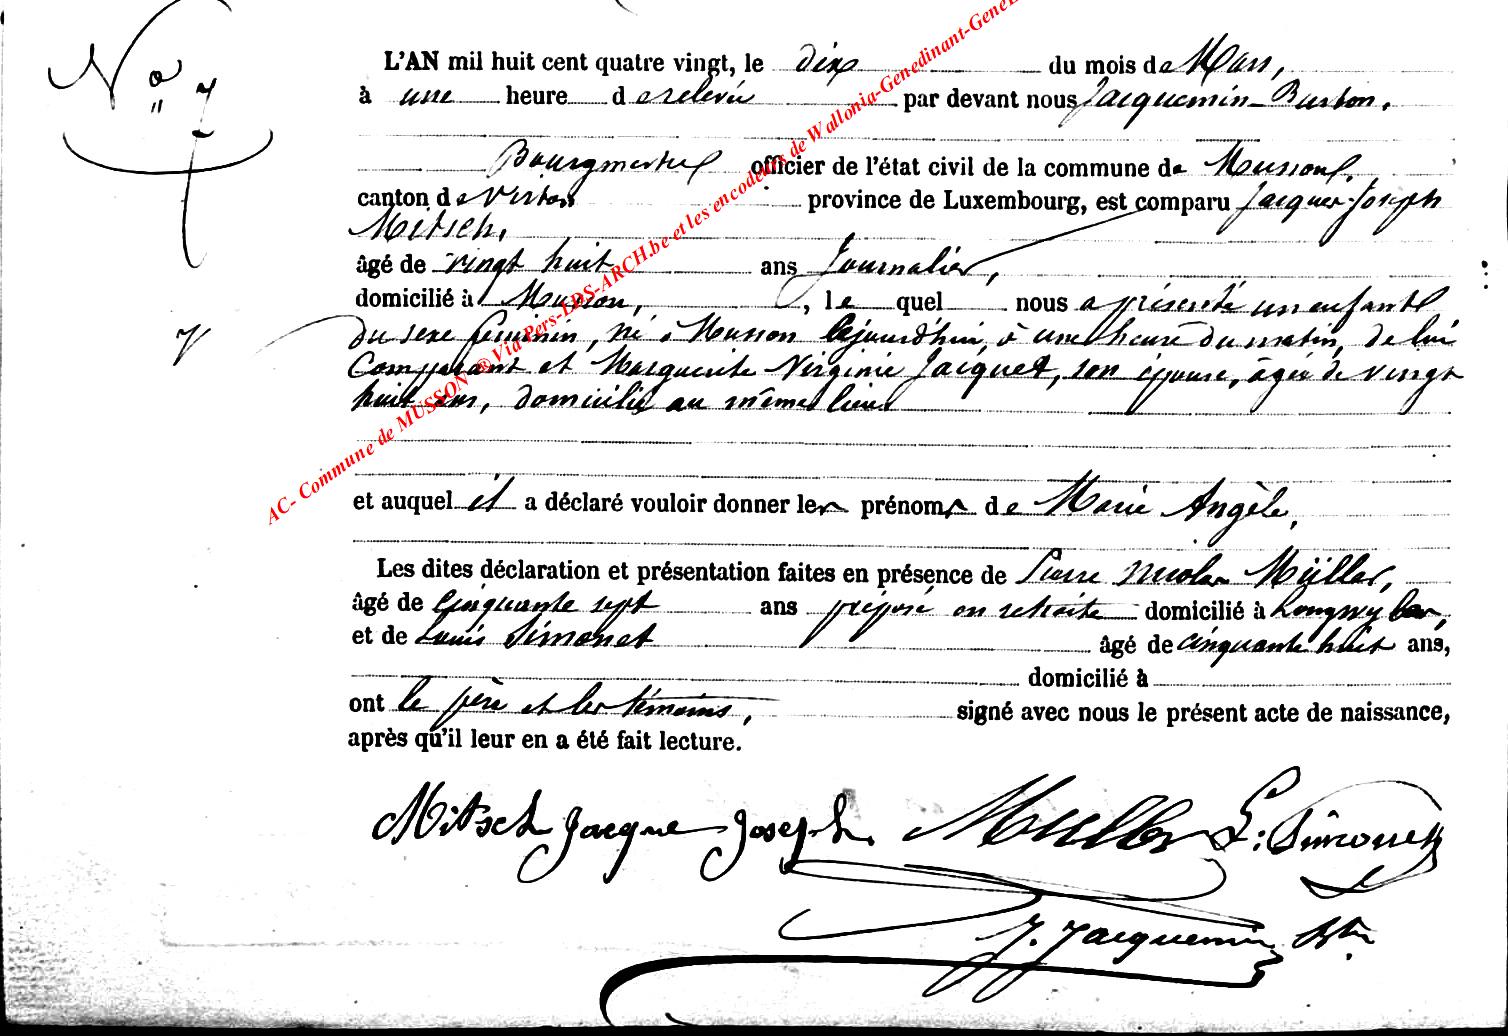 N° 7
L'AN mil huit cent quatre vingt, le dix du mois de Mars,
à une heure de relevée par devant nous Jacquemin-Burton,
Bourgmestre officier de l'état civil de la commune de Musson,
canton de Virton province de Luxembourg, est comparu Jacques-Joseph
Mitsch,
âgé de vingt huit ans Journalier,
domicilié à Musson, , le quel nous a présenté un enfant
du sexe féminin, né à Musson cejourd'hui, à une heure du matin, de lui
Comparant et Marguerite Virginie Jacquet, son épouse, âgée de vingt
huit ans, domiciliée au même lieu
et auquel il a déclaré vouloir donner les prénoms de Marie Angèle,
Les dites déclaration et présentation faites en présence de Pierre Nicolas Müller,
âgé de Cinquante sept ans préposé en retraite domicilié à Longwy bas,
et de Louis Simonet âgé de cinquante huit ans,
domicilié à
ont le père et les témoins, signé avec nous le présent acte de naissance,
après qu'il leur en a été fait lecture.
Mitsch Jacque Joseph. Muller L. Simonet
J. Jacquemin Btn
AC- Commune de MUSSON ® Via Pers-LDS-ARCH.be et les encodeurs de Wallonia-Genedinant-GeneB